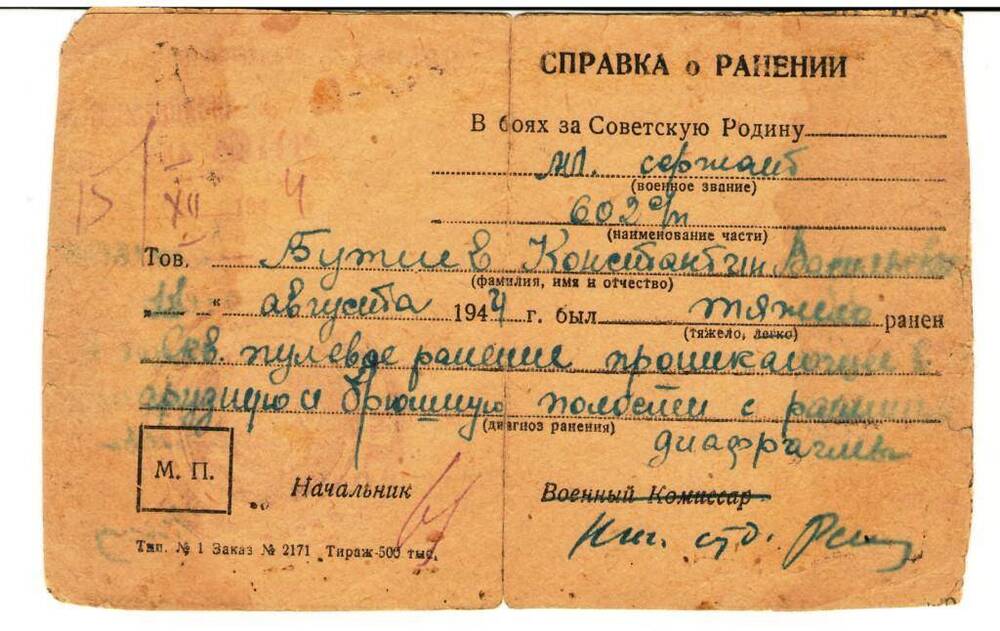 СПРАВКА о РАНЕНИИ
В боях за Советскую Родину
мл. сержант
(военное звание)
602 с/п
(наименование части)
Тов. Бужиев Константин Васильевич
(фамилия, имя и отчество)
„11“ августа 1944 г. был тяжело ранен
(тяжело, легко)
Скв. пулевое ранение проникающее в
грудную и брюшную полости с ранением
(диагноз ранения)
диафрагмы
М. П.
Начальник
Военный Комиссар
Нач. отд.
Тип. № 1 Заказ № 2171 Тираж-500 тыс.
15
XII
4